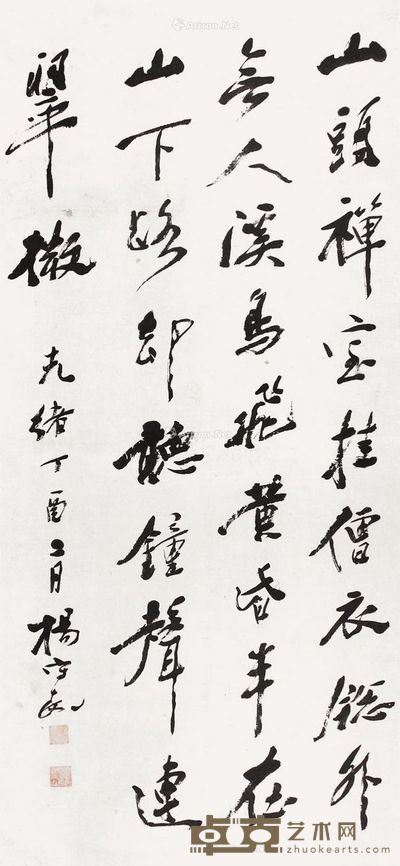 山頭禪室挂僧衣窗外
無人溪鳥飛黃昏半在
山下路却聽鐘聲連
翠微
光緒丁酉二月楊守敬
Artron.Net
卓克艺术网
zhuokearts.com